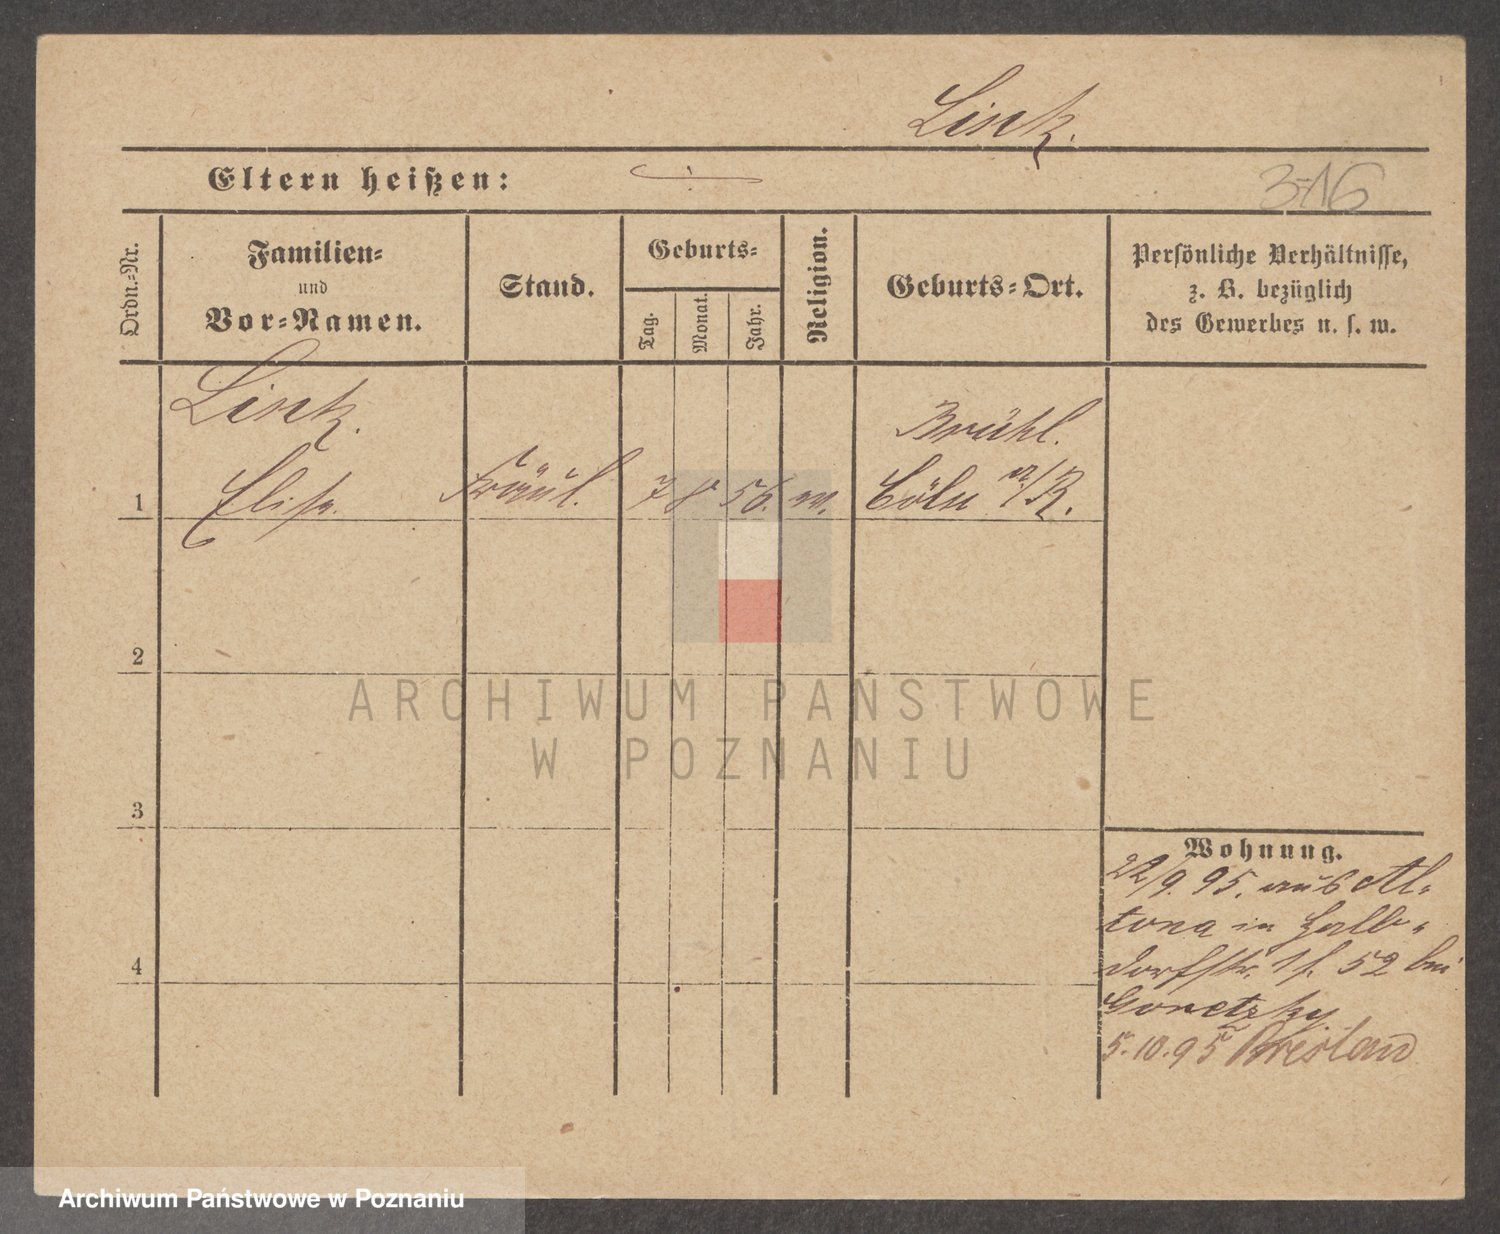 Link.
Eltern heißen:
3-16
Ordn.-Nr.
Familien-
und
Vor-Namen.
Stand.
Geburts-
Tag.
Monat.
Jahr.
Religion.
Geburts-Ort.
Persönliche Verhältnisse,
z. B. bezüglich
des Gewerbes u. s. w.
Link.
Brühl.
1 Elise. Fräul. 7 8 56. Cöln a/R.
2
3
4
Wohnung.
22/9. 95. aus Al-
tona in Halb-
dorfstr. 52 bei
Goretzky
5.10.95 Breslau
ARCHIWUM PAŃSTWOWE
W POZNANIU
Archiwum Państwowe w Poznaniu